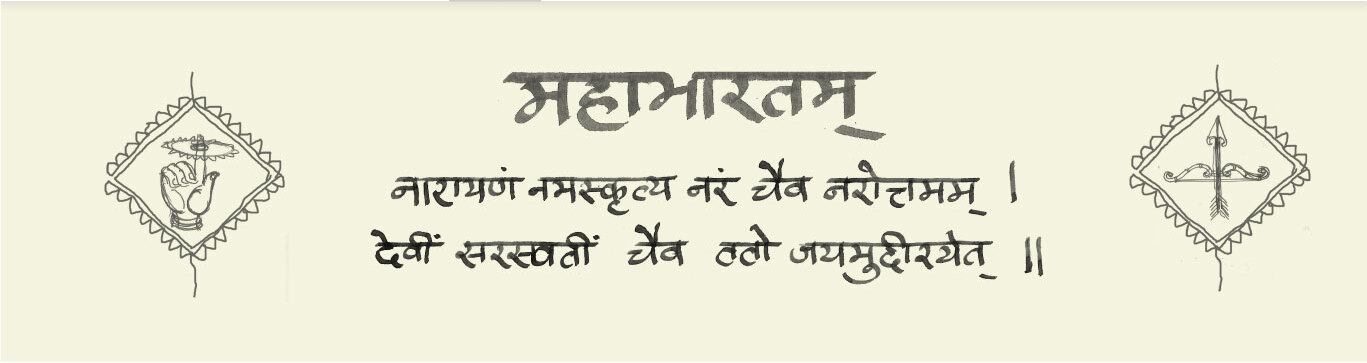 महाभारतम्
नारायणं नमस्कृत्य नरं चैव नरोत्तमम् ।
देवीं सरस्वतीं चैव ततो जयमुदीरयेत् ॥